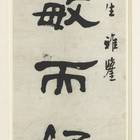 生雅鑒
敏而好